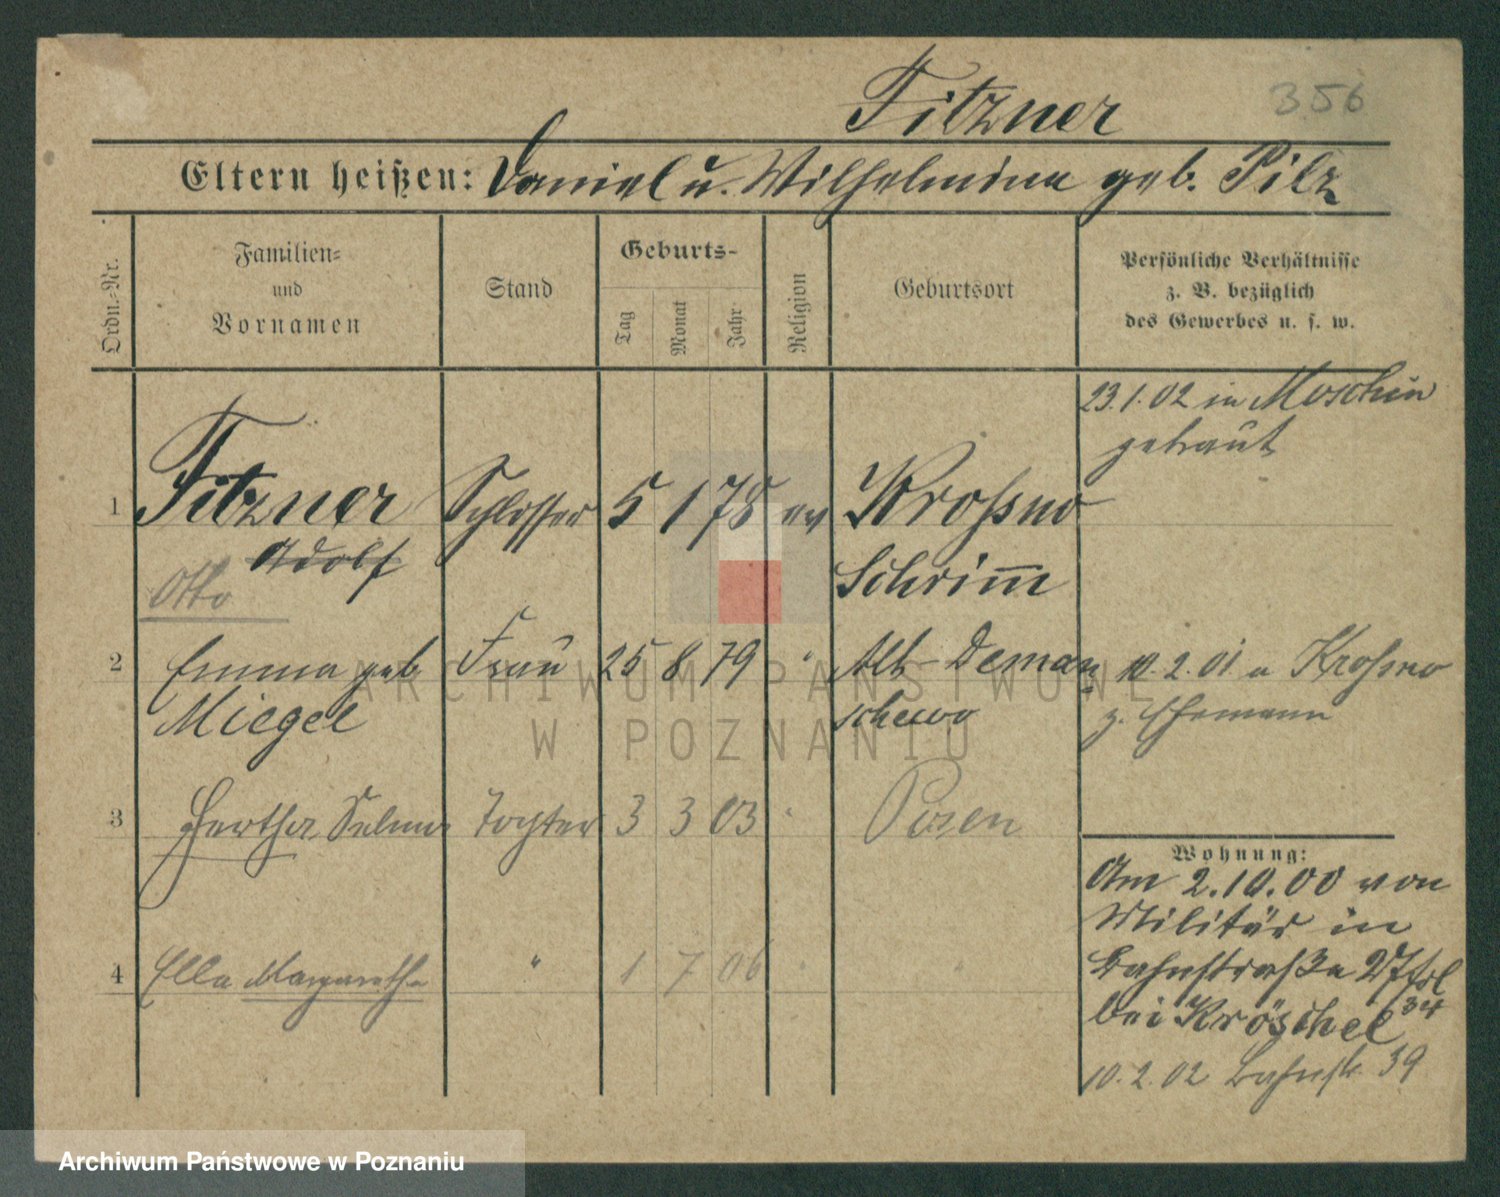 Fitzner
356
Eltern heißen: Daniel u. Wilhelmina geb. Pilz
Ordn.-Nr.
Familien- und Vornamen
Stand
Geburts-
Tag
Monat
Jahr
Religion
Geburtsort
Persönliche Verhältnisse
z. B. bezüglich
des Gewerbes u. s. w.
23.1.02 in Moschin
getraut
1 Fitzner Schlosser 5 1 78 ev Krossno
Adolf Schrimm
Otto
2 Emma geb Frau 25 8 79 " Alt-Deman
Miegel schewo
10.2.01 a Krossno
z. Ehemann
3 Hertha Selma Tochter 3 3 03 " Posen
4 Ella Margarethe " 1 7 06 " "
Wohnung:
Am 2.10.00 von
Militär in
Bahnstraße 27
bei Kröschel
10.2.02 Bahnstr. 39
ARCHIWUM PAŃSTWOWE
W POZNANIU
Archiwum Państwowe w Poznaniu